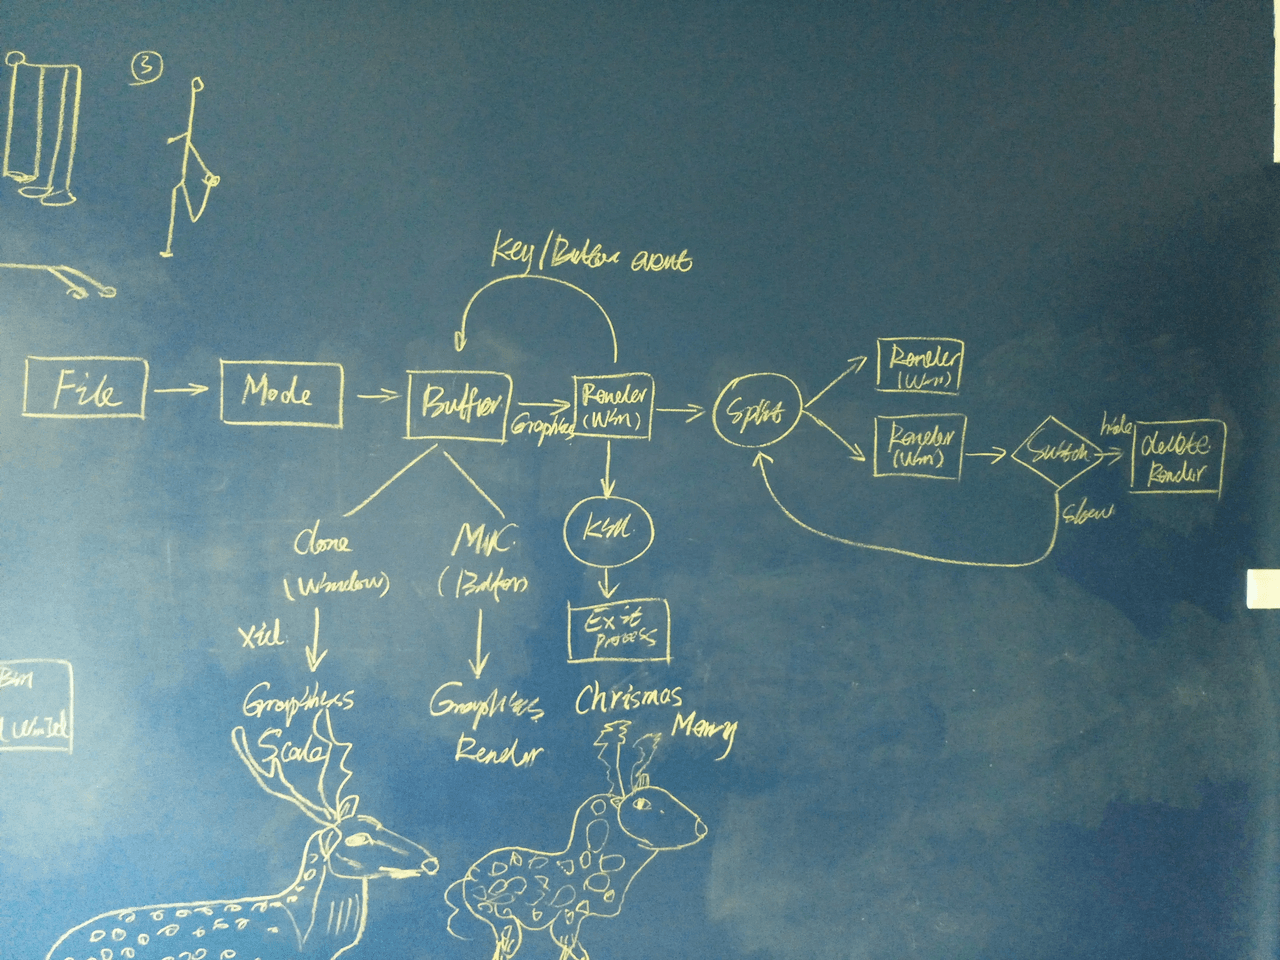 3
Key/Buffer event
File
Mode
Buffer
Graphics
Render
(Wsm)
Split
Render
(Wsm)
Render
(Wsm)
Switch
hide
delete
Render
show
Clone
(Window)
MVC
(Buffer)
Kill
Exit
process
Xid
Graphics
Scale
Graphics
Render
Chrismas
Merry